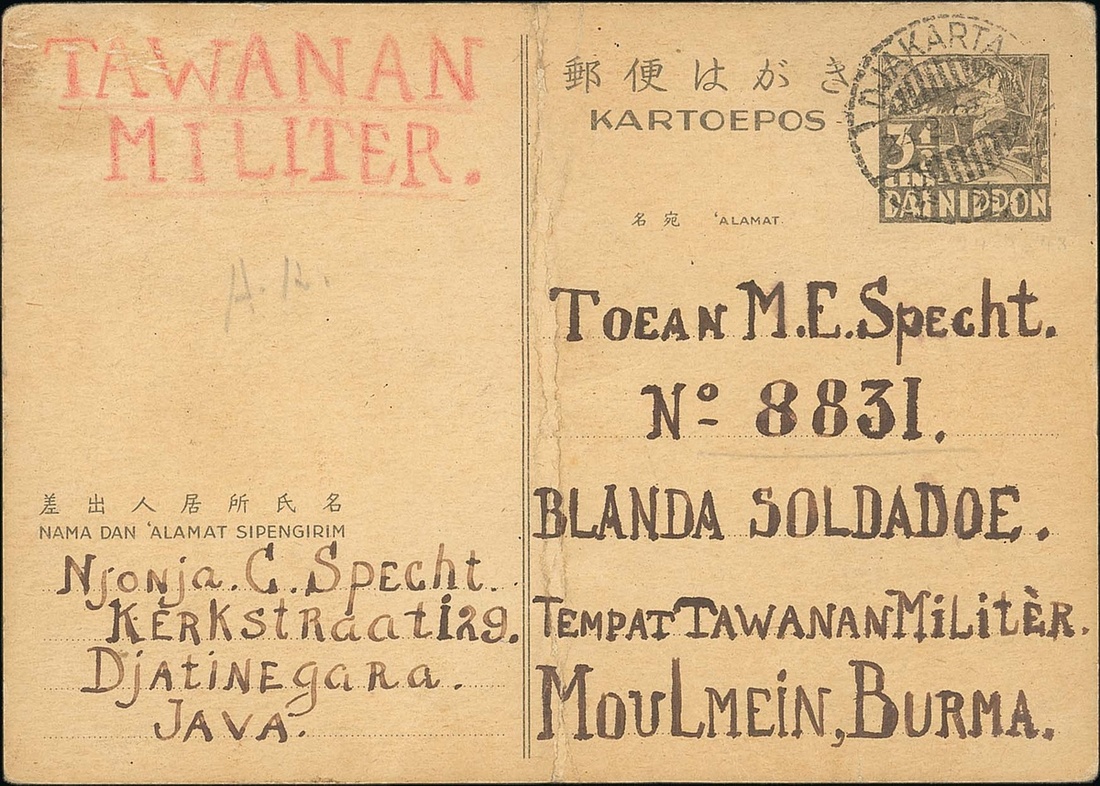 TAWANAN
MILITER.
A.R.
郵便はがき
KARTOEPOS
DJAKARTA
3½
CENT
DAI NIPPON
名宛 'ALAMAT
TOEAN M.E. Specht.
No 8831.
BLANDA SOLDADOE.
TEMPAT TAWANAN MiLitèR.
MOULMEiN, BURMA.
差出人居所氏名
NAMA DAN 'ALAMAT SIPENGIRIM
Njonja. C. Specht.
KERKstRaat 129.
DjAtiNEgaRa.
JAVA.